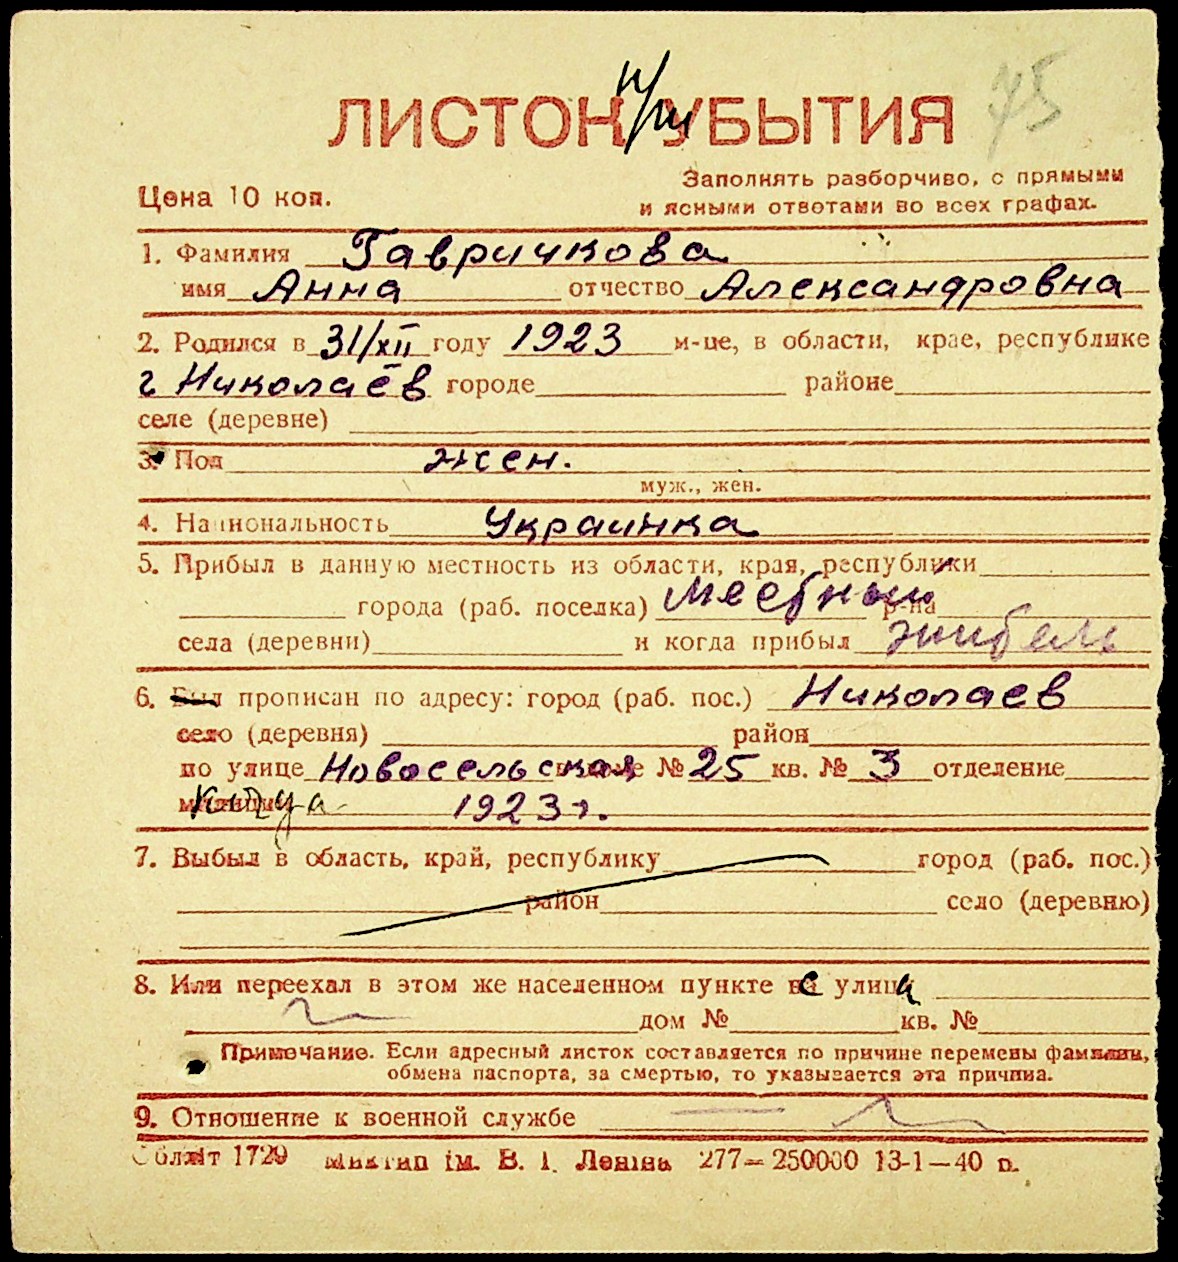 ЛИСТОК УБЫТИЯ 75
Цена 10 коп.
Заполнять разборчиво, с прямыми
и ясными ответами во всех графах.
1. Фамилия Гавричкова
имя Анна отчество Александровна
2. Родился в 31/XII году 1923 м-це, в области, крае, республике
г Николаёв городе районе
селе (деревне)
3. Пол жен.
муж., жен.
4. Национальность Украинка
5. Прибыл в данную местность из области, края, республики
города (раб. поселка) местный р-на
села (деревни) и когда прибыл житель
6. Был прописан по адресу: город (раб. пос.) Николаев
село (деревня) район
по улице Новосельская в доме № 25 кв. № 3 отделение
милиции 1923 г.
7. Выбыл в область, край, республику город (раб. пос.)
район село (деревню)
8. Или переехал в этом же населенном пункте с улицы
дом № кв. №
Примечание. Если адресный листок составляется по причине перемены фамилии,
обмена паспорта, за смертью, то указывается эта причина.
9. Отношение к военной службе
Обліт 1729 ім. В. І. Леніна 277—250000 13-1—40 р.